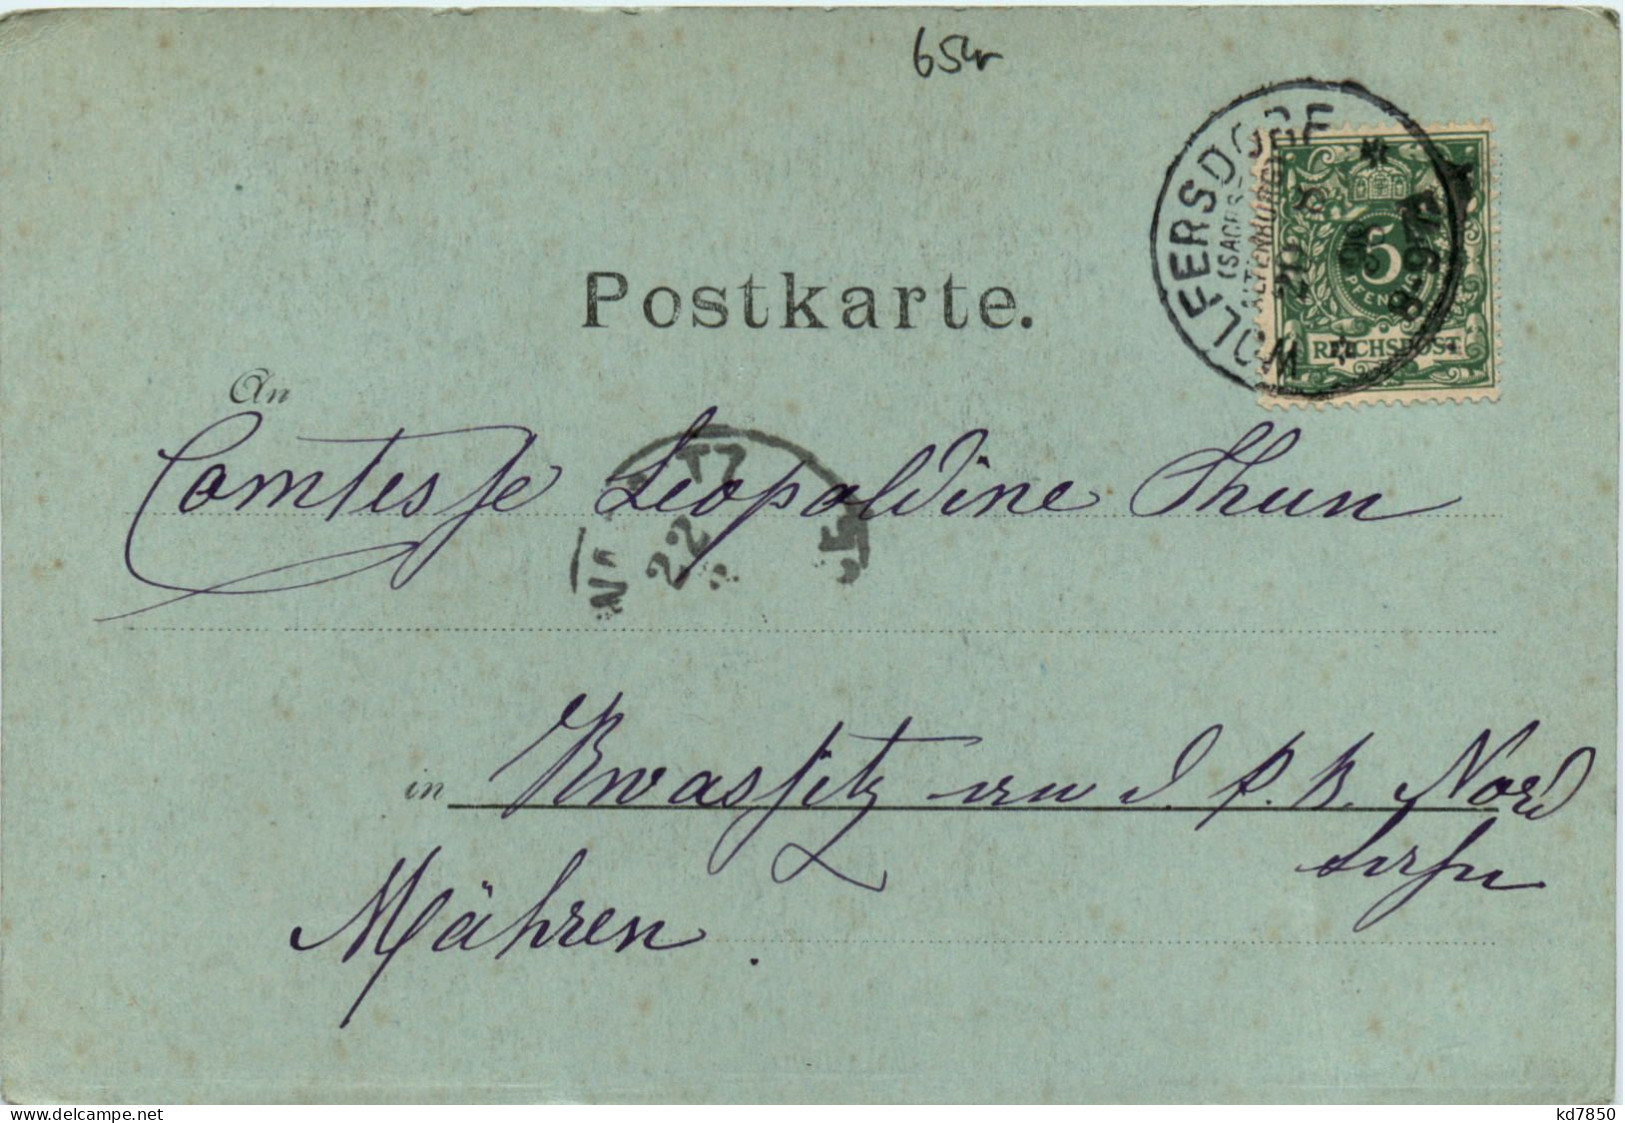 65
WOLFERSDORF
(SACHS.-
ALTENBURG)
8-9
5
PFENNIG
REICHSPOST
Postkarte.
An
Comtesse Leopoldine Thun
TZ
22
in Kwassitz an d. k. k. Nord
Mähren.
www.delcampe.net
kd7850